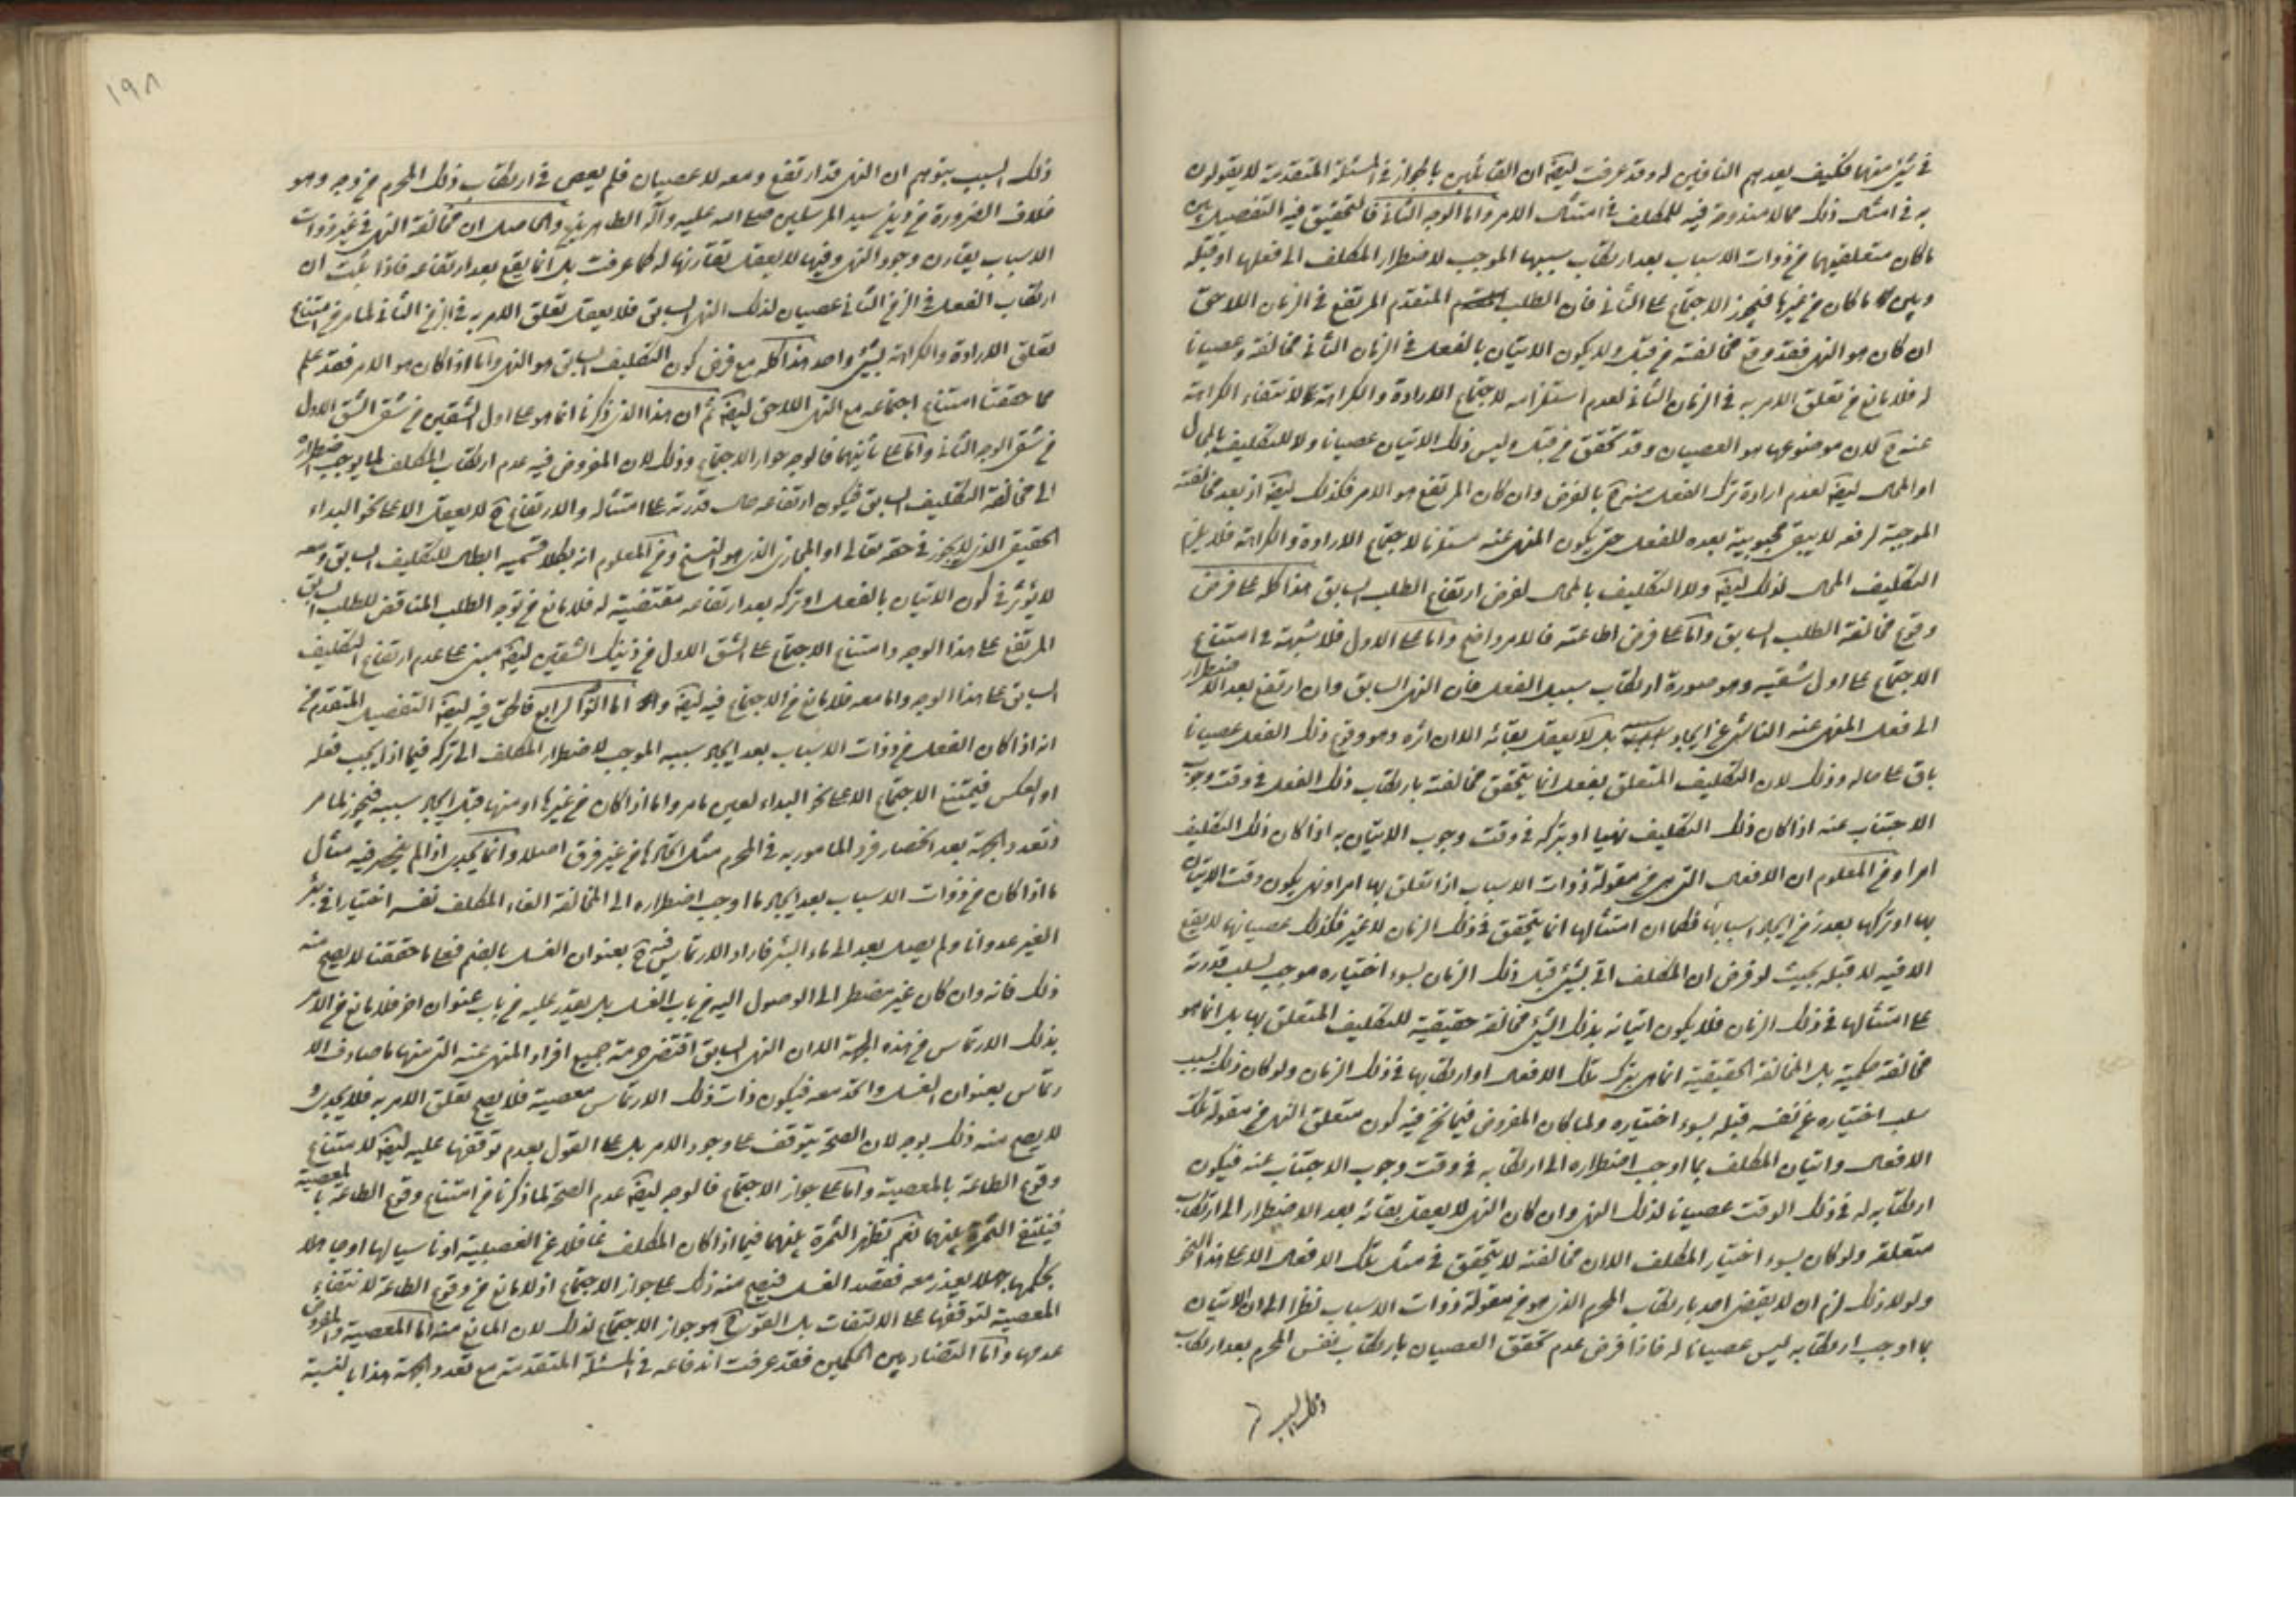 في شيئ منها فكيف يعدهم النافين له وقد عرفت ليقه ان القائلين بالجواز في المسئلة المتقدمة لا يقولون
به في امثال ذلك مما لا مندوحة فيه للمكلف في امتثال الامر واما الوجه الثاني فالتحقيق فيه التفصيل بين
ما كان متعلقيهما من ذوات الاسباب بعد ارتكاب سببها الموجب لاضطرار المكلف الى فعلها او قبله
وبين ما كان من غيرها فيجوز الاجتماع على الثاني فان الطلب المتقدم المرتفع في الزمان اللاحق
ان كان هو النهي فقد وقع مخالفته من قبل ولا يكون الاتيان بالفعل في الزمان الثاني مخالفة وعصيانا
له فلا مانع من تعلق الامر به في الزمان الثاني لعدم استلزامه لاجتماع الارادة والكراهة لانتفاء الكراهة
عنه ح لان موضوعها هو العصيان وقد تحقق من قبل وليس ذلك الاتيان عصيانا ولا للتكليف بالمحال
او المحال ليقه لعدم ارادة ترك الفعل منه ح بالفرض وان كان المرتفع هو الامر فكذلك ليقه اذ بعد مخالفته
الموجبة لرفعه لا يبقى محبوبية بعده للفعل حتى يكون النهي عنه مستلزما لاجتماع الارادة والكراهة فلا يلزم
التكليف المحال لذلك ليقه ولا التكليف بالمحال لفرض ارتفاع الطلب السابق هذا كله على فرض
وقوع مخالفة الطلب السابق واما على فرض اطاعته فالامر واضح واما على الاول فلا شبهة في امتناع
الاجتماع على اول شقيه وهو صورة ارتكاب سبب الفعل فان النهي السابق وان ارتفع بعد الاضطرار
الى فعل المنهي عنه الناشي عن ايجاد سببه بل لا يعقل بقائه الا ان اثره وهو وقوع ذلك الفعل عصيانا
باق على حاله وذلك لان التكليف المتعلق بفعل انما يتحقق مخالفته بارتكاب ذلك الفعل في وقت وجوب
الاجتناب عنه اذا كان ذلك التكليف نهيا او بتركه في وقت وجوب الاتيان به اذا كان ذلك التكليف
امرا ومن المعلوم ان الافعال التي هي من مقولة ذوات الاسباب اذا تعلق بها امر او نهي يكون وقت الاتيان
بها او تركها بعد زمن ايجاد اسبابها فكما ان امتثالها انما يتحقق في ذلك الزمان لا غير فكذلك عصيانها لا يقع
الا فيه لا قبله بحيث لو فرض ان المكلف اتى بشيئ قبل ذلك الزمان بسوء اختياره موجب لسلب قدرته
على امتثالها في ذلك الزمان فلا يكون اتيانه بذلك الشيئ مخالفة حقيقية للتكليف المتعلق بها بل انما هو
مخالفة حكمية بل المخالفة الحقيقية انما هي بترك تلك الافعال او ارتكابها في ذلك الزمان ولو كان ذلك بسبب
سلب اختياره عن نفسه قبله بسوء اختياره ولما كان المفروض فيما نحن فيه كون متعلق النهي من مقولة تلك
الافعال واتيان المكلف بما اوجب اضطراره الى ارتكابه في وقت وجوب الاجتناب عنه فيكون
ارتكابه له في ذلك الوقت عصيانا لذلك النهي وان كان النهي لا يعقل بقائه بعد الاضطرار الى ارتكاب
متعلقه ولو كان بسوء اختيار المكلف الا ان مخالفته لا يتحقق في مثل تلك الافعال الا على هذا النحو
ولولا ذلك لزم ان لا يعصي احد بارتكاب المحرم الذي هو من مقولة ذوات الاسباب نظرا الى ان الاتيان
بما اوجب ارتكابه ليس عصيانا له فاذا فرض عدم تحقق العصيان بارتكاب نفس المحرم بعد ارتكاب
ذلك السبب
١٩٨
ذلك السبب بتوهم ان النهي قد ارتفع ومعه لا عصيان فلم يعص في ارتكاب ذلك المحرم من وجه وهو
خلاف الضرورة من دين سيد المرسلين صلى الله عليه وآله الطاهرين والحاصل ان مخالفة النهي في غير ذوات
الاسباب يقارن وجود النهي وفيها لا يعقل تقارنها له كما عرفت بل انما يقع بعد ارتفاعه فاذا ثبت ان
ارتكاب الفعل في الزمن الثاني عصيان لذلك النهي السابق فلا يعقل تعلق الامر به في الزمن الثاني لما مر من امتناع
تعلق الارادة والكراهة بشيئ واحد هذا كله مع فرض كون التكليف السابق هو النهي واما اذا كان هو الامر فقد علم
مما حققنا امتناع اجتماعه مع النهي اللاحق ليقه ثم ان هذا الذي ذكرنا انما هو على اول الشقين من شقي الشق الاول
من شقي الوجه الثاني واما على ثانيهما فالوجه جواز الاجتماع وذلك لان المفروض فيه عدم ارتكاب المكلف لما يوجب اضطراره
الى مخالفة التكليف السابق فيكون ارتفاعه حال قدرته على امتثاله والارتفاع ح لا يعقل الا على نحو البداء
الحقيقي الذي لا يجوز في حقه تعالى او المجازي الذي هو النسخ ومن المعلوم انه بكلا قسميه ابطال للتكليف السابق ومعه
لا يؤثر في كون الاتيان بالفعل او تركه بعد ارتفاعه مقتضية له فلا مانع من توجه الطلب المناقض للطلب السابق
المرتفع على هذا الوجه وامتناع الاجتماع على الشق الاول من ذينك الشقين ليقه مبني على عدم ارتفاع التكليف
السابق على هذا الوجه واما معه فلا مانع من الاجتماع فيه ليقه واما الوجه الرابع فالحق فيه ليقه التفصيل المتقدم من
انه اذا كان الفعل من ذوات الاسباب بعد ايجاد سببه الموجب لاضطرار المكلف الى تركه فيما اذا يجب فعله
او العكس فيمتنع الاجتماع الا على نحو البداء لعين ما مر واما اذا كان من غيرها او منها قبل ايجاد سببه فيجوز لما مر
وتعدد الجهة بعد انحصار فرد المامور به في المحرم مثل اتحادها من غير فرق اصلا وانما يجدي اذا لم ينحصر فيه مثال
ما اذا كان من ذوات الاسباب بعد ايجاد ما اوجب اضطراره الى المخالفة القاء المكلف نفسه اختيارا في بئر
الغير عدوانا ولم يصل بعد الى ماء البئر فاراد الارتماس فيه ح بعنوان الغسل بالضم فعلى ما حققنا لا يصح منه
ذلك فانه وان كان غير مضطر الى الوصول اليه من باب الغسل بل يقدر عليه من باب عنوان اخر فلا مانع من الامر
بذلك الارتماس من هذه الجهة الا ان النهي السابق اقتضى حرمة جميع افراد المنهي عنه التي منها ما صادف الا
رتماس بعنوان الغسل واتحد معه فيكون ذات ذلك الارتماس معصية فلا يصح تعلق الامر به فلا يجدي و
لا يصح منه ذلك بوجه لان الصحة يتوقف على وجود الامر بل على القول بعدم توقفها عليه ليقه لامتناع
وقوع الطاعة بالمعصية واما على جواز الاجتماع فالوجه ليقه عدم الصحة لما ذكرنا من امتناع وقوع الطاعة بالمعصية
فينتفي الثمرة بينهما نعم تظهر الثمرة بينهما فيما اذا كان المكلف غافلا عن الغصبية او ناسيا لها او جاهلا
بحكمها جهلا يعذر معه فقصد الغسل فيصح منه ذلك على جواز الاجتماع اذ لا مانع من وقوع الطاعة لانتفاء
المعصية لتوقفها على الالتفات بل القول ح هو جواز الاجتماع لذلك لان المانع منه اما المعصية والمفروض
عدمها واما التضاد بين الحكمين فقد عرفت اندفاعه في المسئلة المتقدمة مع تعدد الجهة هذا بالنسبة